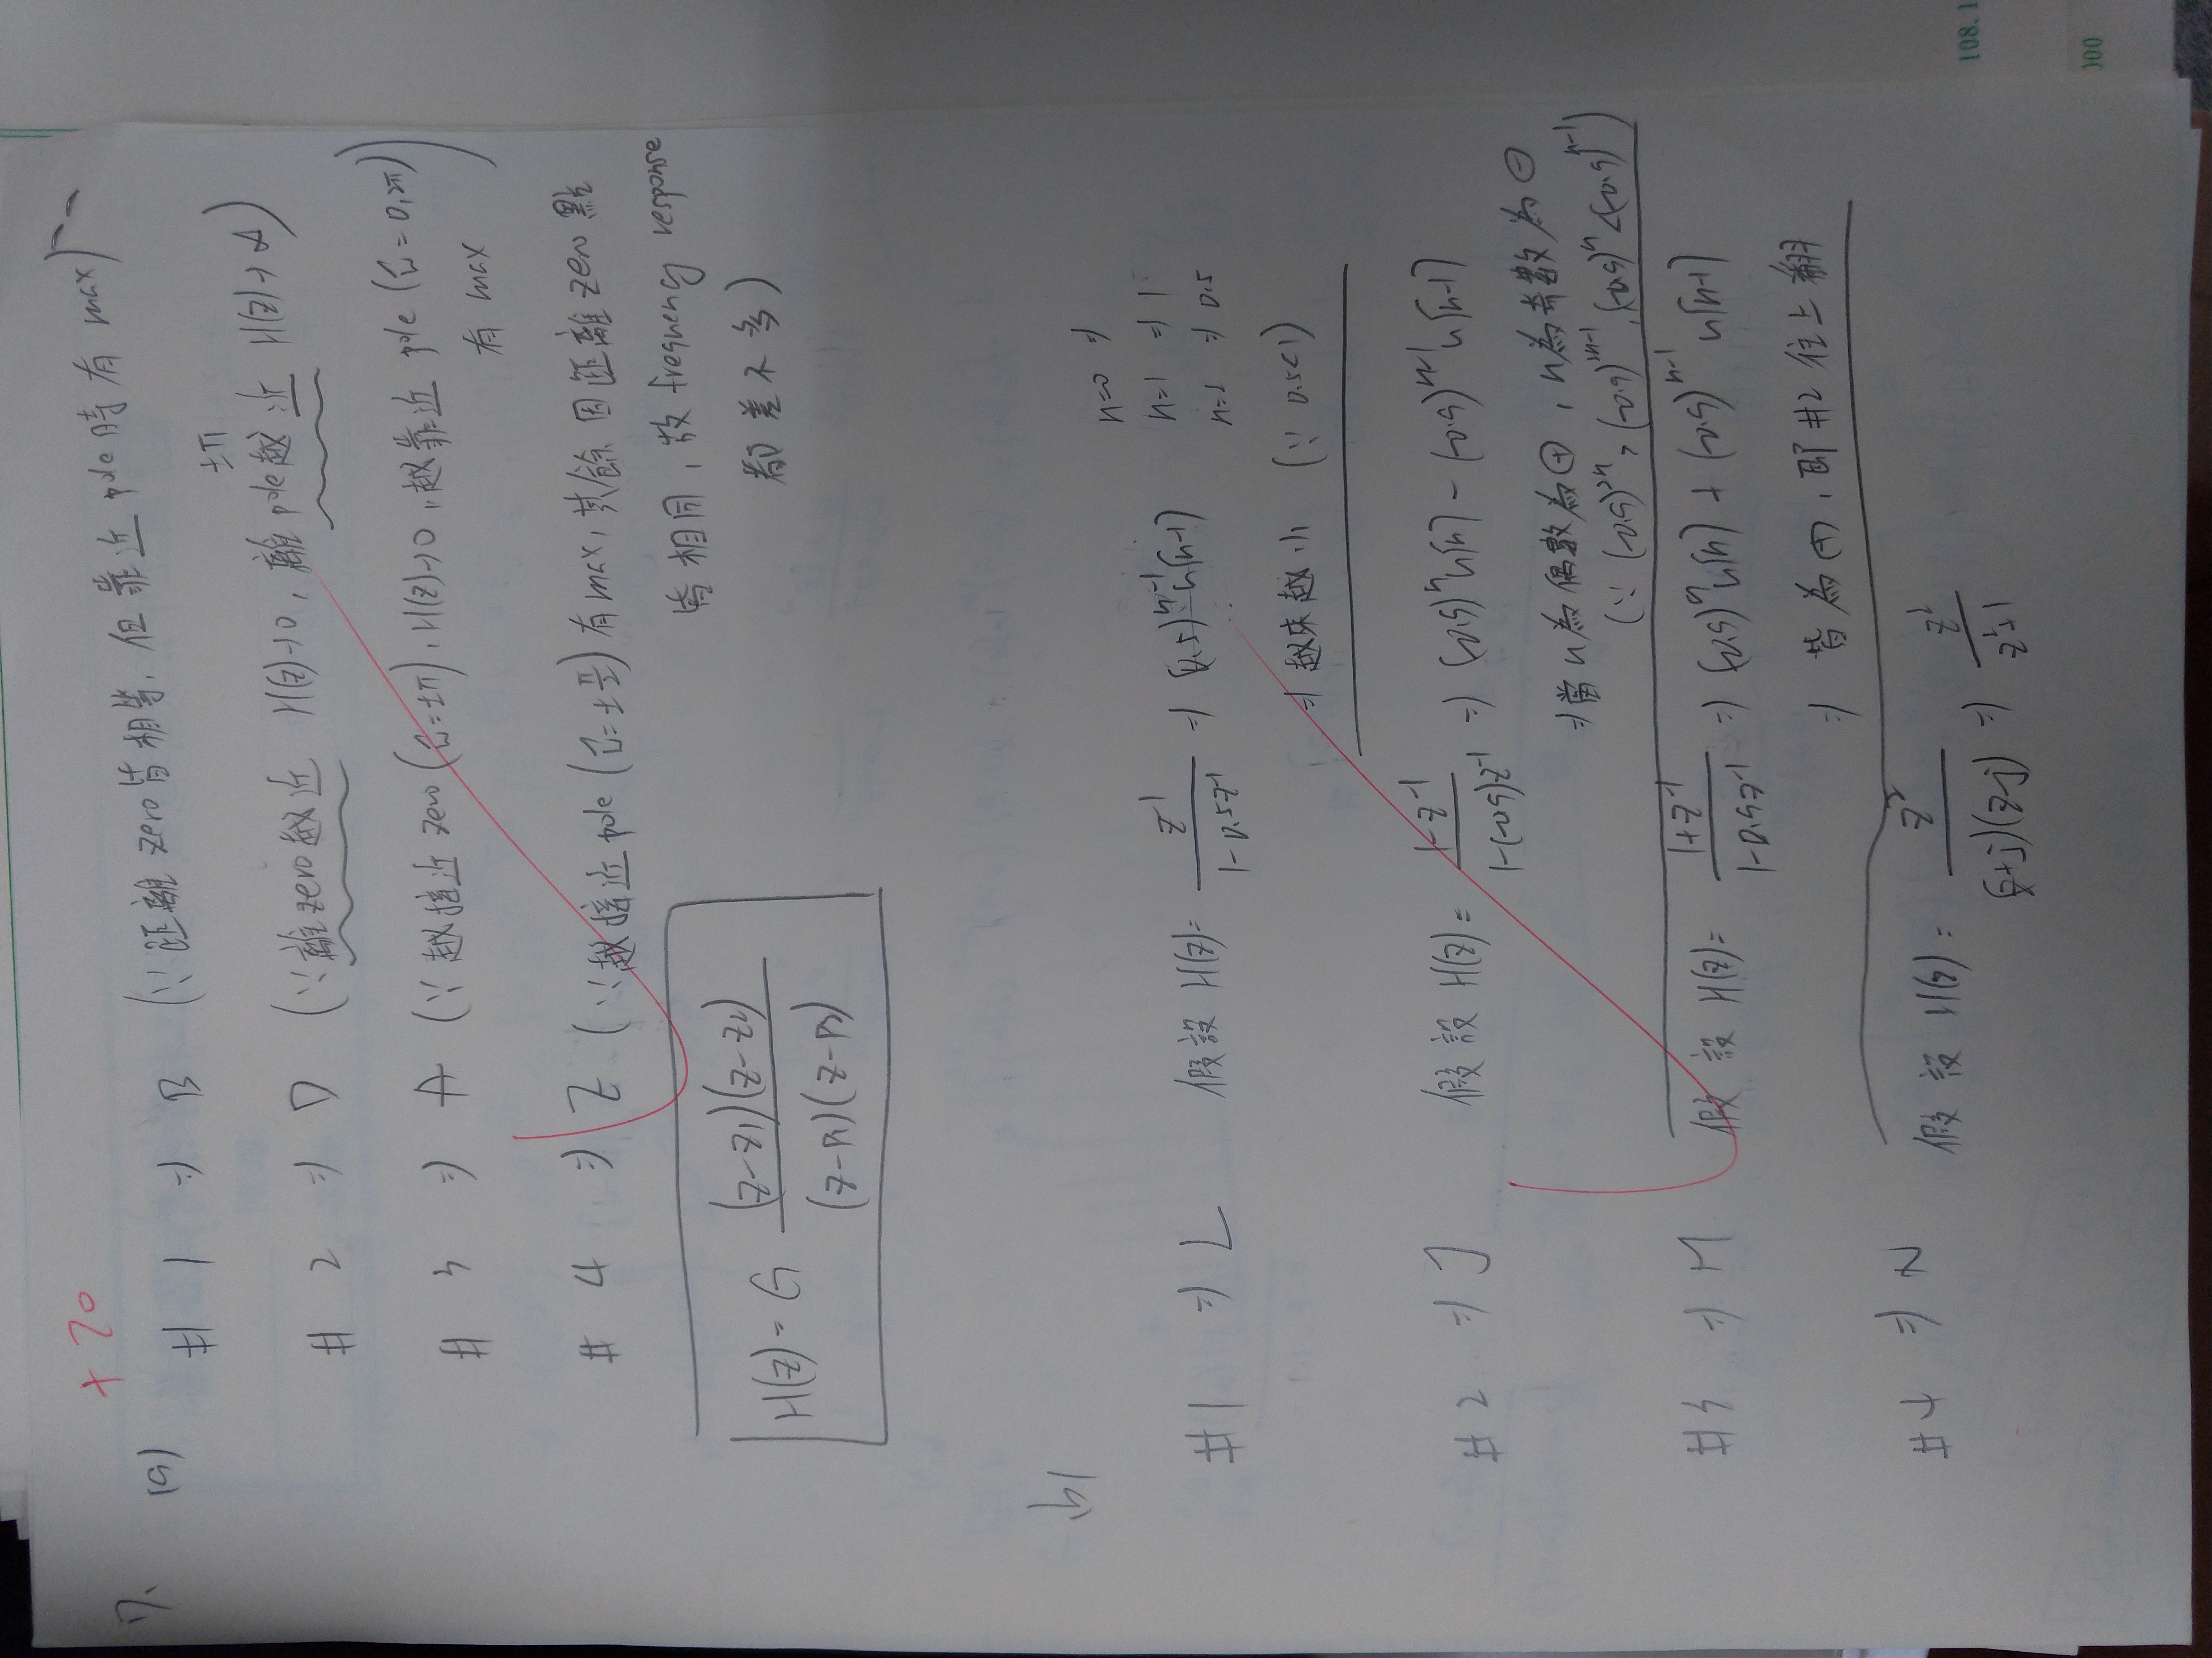 +20
7.
(a) #1 ⇒ B (∵距離zero皆相等, 但靠近pole時有max)
±π
#2 ⇒ D (∵離zero越近 H(z)→0, 離pole越近 H(z)→∞)
#3 ⇒ A (∵越接近zero(Ω=±π), H(z)→0, 越靠近pole(Ω=0,2π)
有max)
#4 ⇒ (∵越接近pole(Ω=±π/2)有max, 其餘因距離zero點
皆相同, 故frequency response
都差不多)
H(z)=G (z-z1)(z-z2) / (z-p1)(z-p2)
b)
n=0 ⇒
#1 ⇒ L 假設H(z)= z^-1 / 1-0.5z^-1 ⇒ (0.5)^n-1 u[n-1]
n=1 ⇒ 1
n=2 ⇒ 0.5
⇒越來越小 (∵ 0.5<1)
#2 ⇒ J 假設H(z)= 1-z^-1 / 1-(-0.9)z^-1 ⇒ (-0.9)^n u[n] - (-0.9)^n-1 u[n-1]
⇒當n為偶數為⊕, n為奇數為⊖
(∵ (-0.9)^2n > (-0.9)^2n-1, (-0.9)^n < (-0.9)^n-1)
#3 ⇒ M 假設H(z)= 1+z^-1 / 1-0.9z^-1 ⇒ (-0.9)^n u[n] + (-0.9)^n-1 u[n-1]
⇒ 皆為⊕, 即#2往上翻
#4 ⇒ N 假設H(z)= z^2 / (z+j)(z-j) ⇒ z^2 / z^2+1
108.1
000